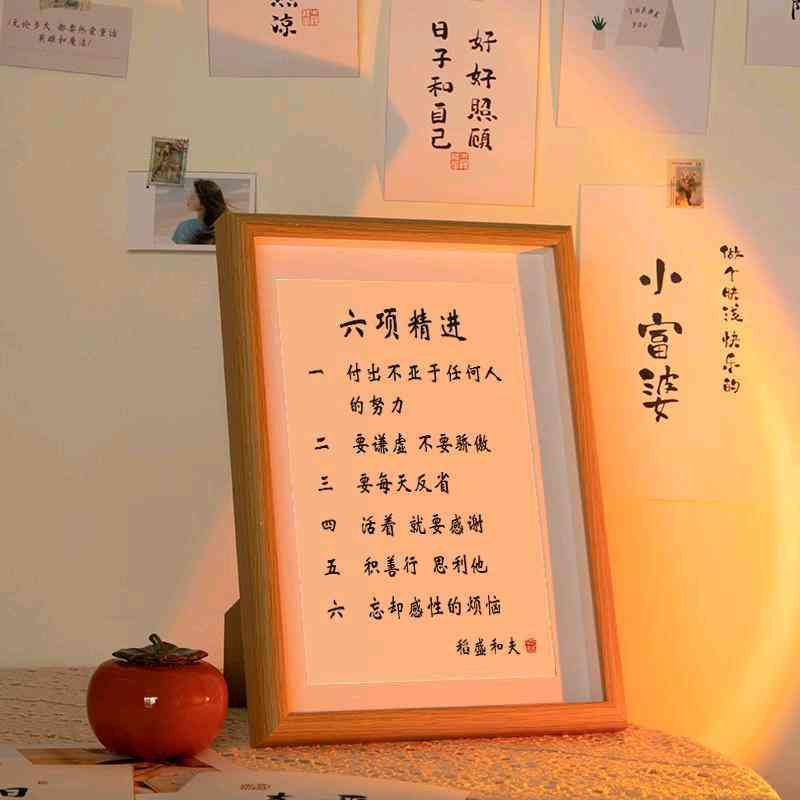 无论多大 都要热爱童话
英雄和魔法!
然凉
好好照顾
日子和自己
THANK
YOU
小富婆
做个肤浅快乐的
六项精进
一 付出不亚于任何人
的努力
二 要谦虚 不要骄傲
三 要每天反省
四 活着 就要感谢
五 积善行 思利他
六 忘却感性的烦恼
稻盛和夫